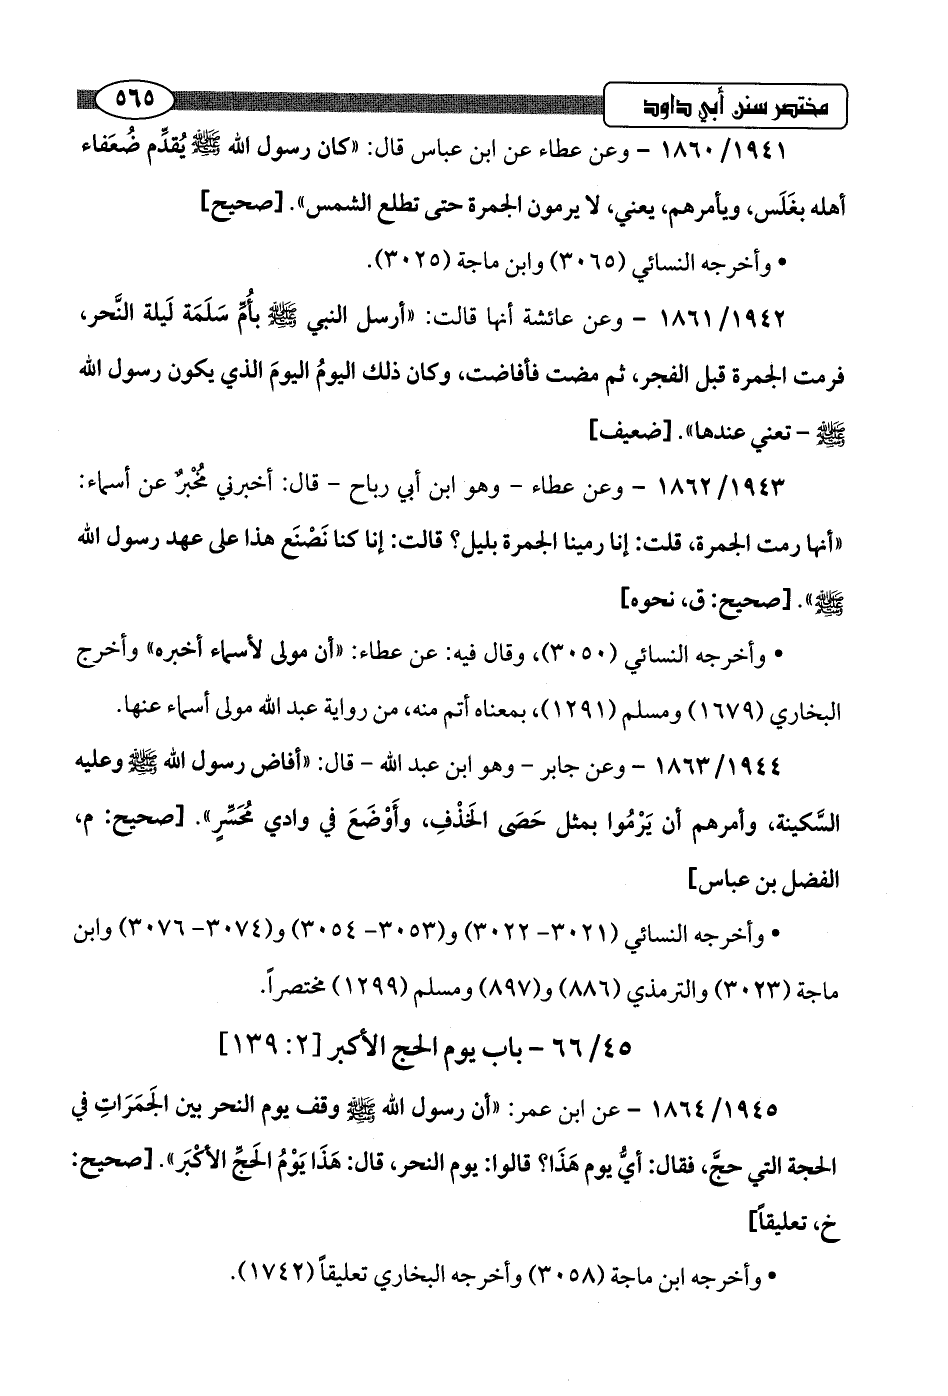 مختصر سنن أبي داود
٥٦٥
١٨٦٠/١٩٤١ – وعن عطاء عن ابن عباس قال: «كان رسول الله ﷺ يُقدِّم ضُعَفاء
أهله بغَلَس، ويأمرهم، يعني، لا يرمون الجمرة حتى تطلع الشمس». [صحيح]
• وأخرجه النسائي (٣٠٦٥) وابن ماجة (٣٠٢٥).
١٨٦١/١٩٤٢ – وعن عائشة أنها قالت: «أرسل النبي ﷺ بأُمِّ سَلَمَة لَيلة النَّحر،
فرمت الجمرة قبل الفجر، ثم مضت فأفاضت، وكان ذلك اليومُ اليومَ الذي يكون رسول الله
ﷺ – تعني عندها». [ضعيف]
١٨٦٢/١٩٤٣ – وعن عطاء – وهو ابن أبي رباح – قال: أخبرني مُخْبرٌ عن أسماء:
«أنها رمت الجمرة، قلت: إنا رمينا الجمرة بليل؟ قالت: إنا كنا نَصْنَع هذا على عهد رسول الله
ﷺ». [صحيح: ق، نحوه]
• وأخرجه النسائي (٣٠٥٠)، وقال فيه: عن عطاء: «أن مولى لأسماء أخبره» وأخرج
البخاري (١٦٧٩) ومسلم (١٢٩١)، بمعناه أتم منه، من رواية عبد الله مولى أسماء عنها.
١٨٦٣/١٩٤٤ – وعن جابر – وهو ابن عبد الله – قال: «أفاض رسول الله ﷺ وعليه
السَّكينة، وأمرهم أن يَرْمُوا بمثل حَصَى الخَذْفِ، وأَوْضَعَ في وادي مُحَسِّرٍ». [صحيح: م،
الفضل بن عباس]
• وأخرجه النسائي (٣٠٢١– ٣٠٢٢) و(٣٠٥٣– ٣٠٥٤) و(٣٠٧٤– ٣٠٧٦) وابن
ماجة (٣٠٢٣) والترمذي (٨٨٦) و(٨٩٧) ومسلم (١٢٩٩) مختصراً.
٦٦/٤٥ – باب يوم الحج الأكبر [٢: ١٣٩]
١٨٦٤/١٩٤٥ – عن ابن عمر: «أن رسول الله ﷺ وقف يوم النحر بين الجَمَرَاتِ في
الحجة التي حجَّ، فقال: أيُّ يوم هَذَا؟ قالوا: يوم النحر، قال: هَذَا يَوْمُ الحَجِّ الأكْبَر». [صحيح:
خ، تعليقاً]
• وأخرجه ابن ماجة (٣٠٥٨) وأخرجه البخاري تعليقاً (١٧٤٢).